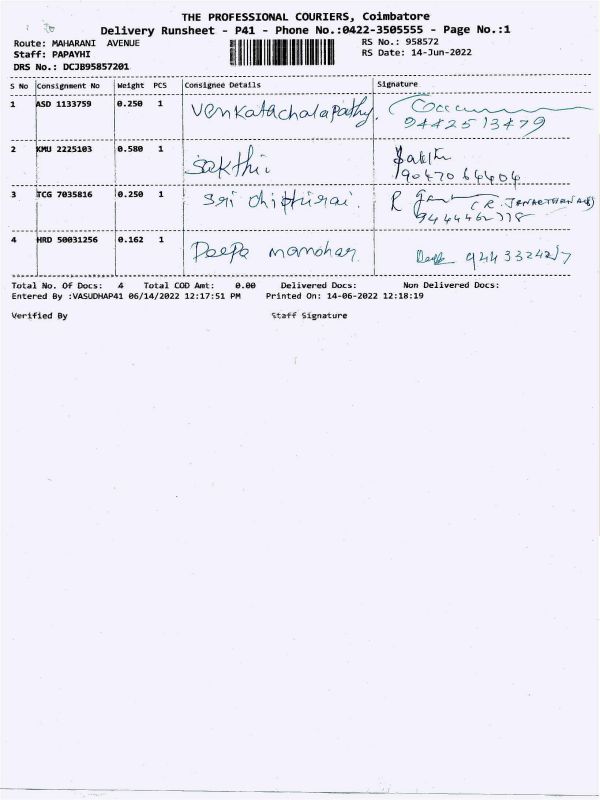 THE PROFESSIONAL COURIERS, Coimbatore
Delivery Runsheet - P41 - Phone No.:0422-3505555 - Page No.:1
Route: MAHARANI AVENUE RS No.: 958572
Staff: PAPAYHI RS Date: 14-Jun-2022
DRS No.: DCJB95857201
S No Consignment No Weight PCS Consignee Details Signature
1 ASD 1133759 0.250 1 Venkatachalapathy.
9442513479
2 KMU 2225103 0.580 1 Sakthi Sakthi
9047064404
3 TCG 7035816 0.250 1 Sri R (R. JANARTHANAN)
4 HRD 50031256 0.162 1 Deepa manohar Deepa
Total No. Of Docs: 4 Total COD Amt: 0.00 Delivered Docs: Non Delivered Docs:
Entered By :VASUDHAP41 06/14/2022 12:17:51 PM Printed On: 14-06-2022 12:18:19
Verified By Staff Signature